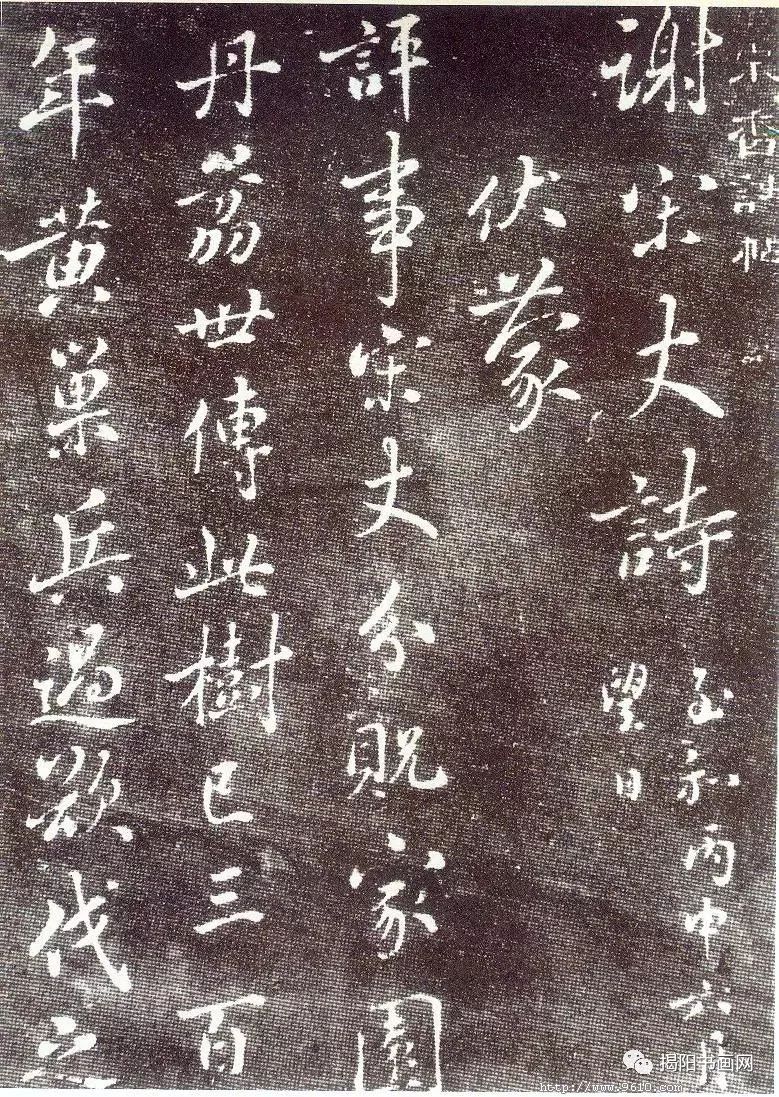 宋香詩帖
謝宋大詩
至和丙申六月
望日
伏蒙
評事宋丈分貺家園
丹荔世傳此樹已三百
年黄巢兵過欲伐之
揭阳书画网
http://www.9610.com/